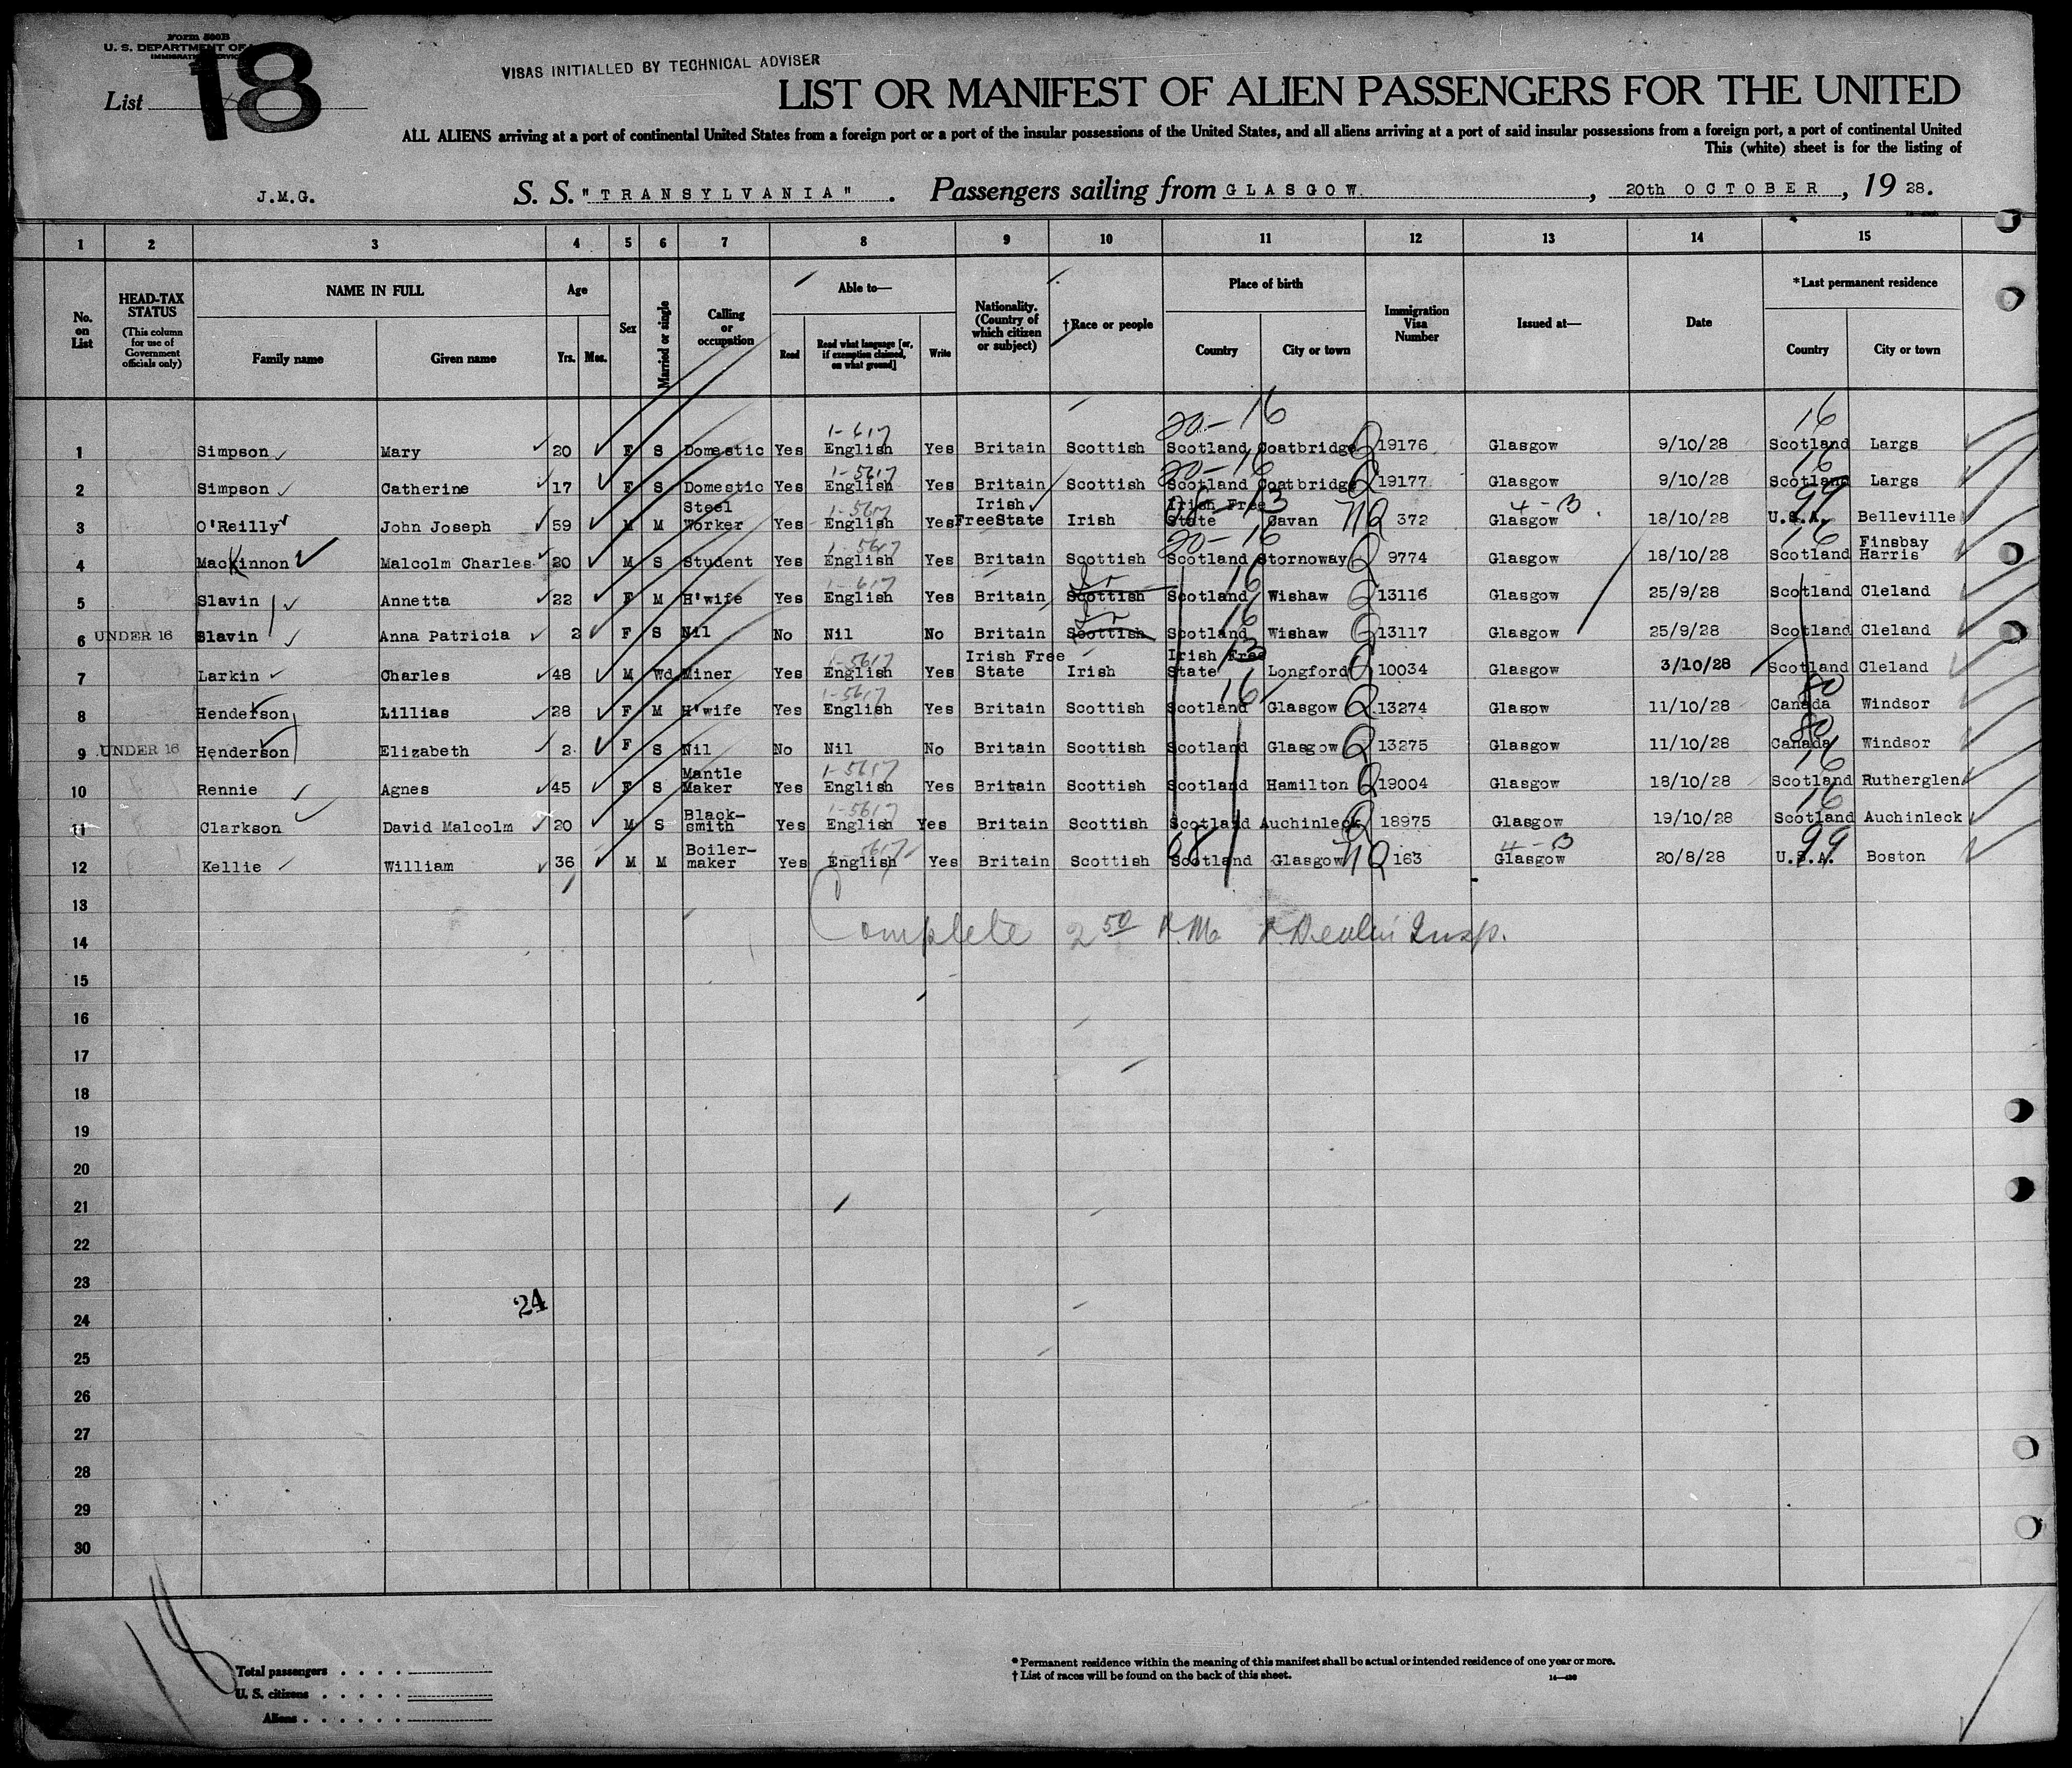 Form 500B
U. S. DEPARTMENT OF
IMMIGRATION SERVICE
18
List
VISAS INITIALLED BY TECHNICAL ADVISER
LIST OR MANIFEST OF ALIEN PASSENGERS FOR THE UNITED
ALL ALIENS arriving at a port of continental United States from a foreign port or a port of the insular possessions of the United States, and all aliens arriving at a port of said insular possessions from a foreign port, a port of continental United
This (white) sheet is for the listing of
J.M.G. S. S. "TRANSYLVANIA". Passengers sailing from GLASGOW. , 20th OCTOBER , 19 28.
1 2 3 4 5 6 7 8 9 10 11 12 13 14 15
No. on List
HEAD-TAX STATUS (This column for use of Government officials only)
NAME IN FULL Family name Given name
Age Yrs. Mos.
Sex
Married or single
Calling or occupation
Able to— Read Read what language [or, if exemption claimed, on what ground] Write
Nationality. (Country of which citizen or subject)
†Race or people
Place of birth Country City or town
Immigration Visa Number
Issued at—
Date
*Last permanent residence Country City or town
20-16 16
1-617
1 Simpson Mary 20 F S Domestic Yes English Yes Britain Scottish Scotland Coatbridge Q 19176 Glasgow 9/10/28 Scotland Largs
1-5617 20-16 16
2 Simpson Catherine 17 F S Domestic Yes English Yes Britain Scottish Scotland Coatbridge Q 19177 Glasgow 9/10/28 Scotland Largs
1-5617 08-13 4-3 99
3 O'Reilly John Joseph 59 M M Steel Worker Yes English Yes Irish FreeState Irish Irish Free State Cavan NQ 372 Glasgow 18/10/28 U.S.A. Belleville
1-5617 20-16 16
4 MacKinnon Malcolm Charles 20 M S Student Yes English Yes Britain Scottish Scotland Stornoway Q 9774 Glasgow 18/10/28 Scotland Finsbay Harris
1-617 Ir 16
5 Slavin Annetta 22 F M H'wife Yes English Yes Britain Scottish Scotland Wishaw Q 13116 Glasgow 25/9/28 Scotland Cleland
Ir 16
6 UNDER 16 Slavin Anna Patricia 2 F S Nil No Nil No Britain Scottish Scotland Wishaw Q 13117 Glasgow 25/9/28 Scotland Cleland
1-5617 13
7 Larkin Charles 48 M Wd. Miner Yes English Yes Irish Free State Irish Irish Free State Longford Q 10034 Glasgow 3/10/28 Scotland Cleland
1-5617 16 80
8 Henderson Lillias 28 F M H'wife Yes English Yes Britain Scottish Scotland Glasgow Q 13274 Glasow 11/10/28 Canada Windsor
80
9 UNDER 16 Henderson Elizabeth 2 F S Nil No Nil No Britain Scottish Scotland Glasgow Q 13275 Glasgow 11/10/28 Canada Windsor
1-5617 16
10 Rennie Agnes 45 F S Mantle Maker Yes English Yes Britain Scottish Scotland Hamilton Q 19004 Glasgow 18/10/28 Scotland Rutherglen
1-5617 16
11 Clarkson David Malcolm 20 M S Black-smith Yes English Yes Britain Scottish Scotland Auchinleck Q 18975 Glasgow 19/10/28 Scotland Auchinleck
5617 08 4-3 99
12 Kellie William 36 M M Boiler-maker Yes English Yes Britain Scottish Scotland Glasgow NQ 163 Glasgow 20/8/28 U.S.A. Boston
13
14 Complete 2 50 P.M. Insp.
15
16
17
18
19
20
21
22
23
24
24
25
26
27
28
29
30
18
Total passengers . . . .
U. S. citizens . . . . .
Aliens . . . . . .
* Permanent residence within the meaning of this manifest shall be actual or intended residence of one year or more.
† List of races will be found on the back of this sheet.